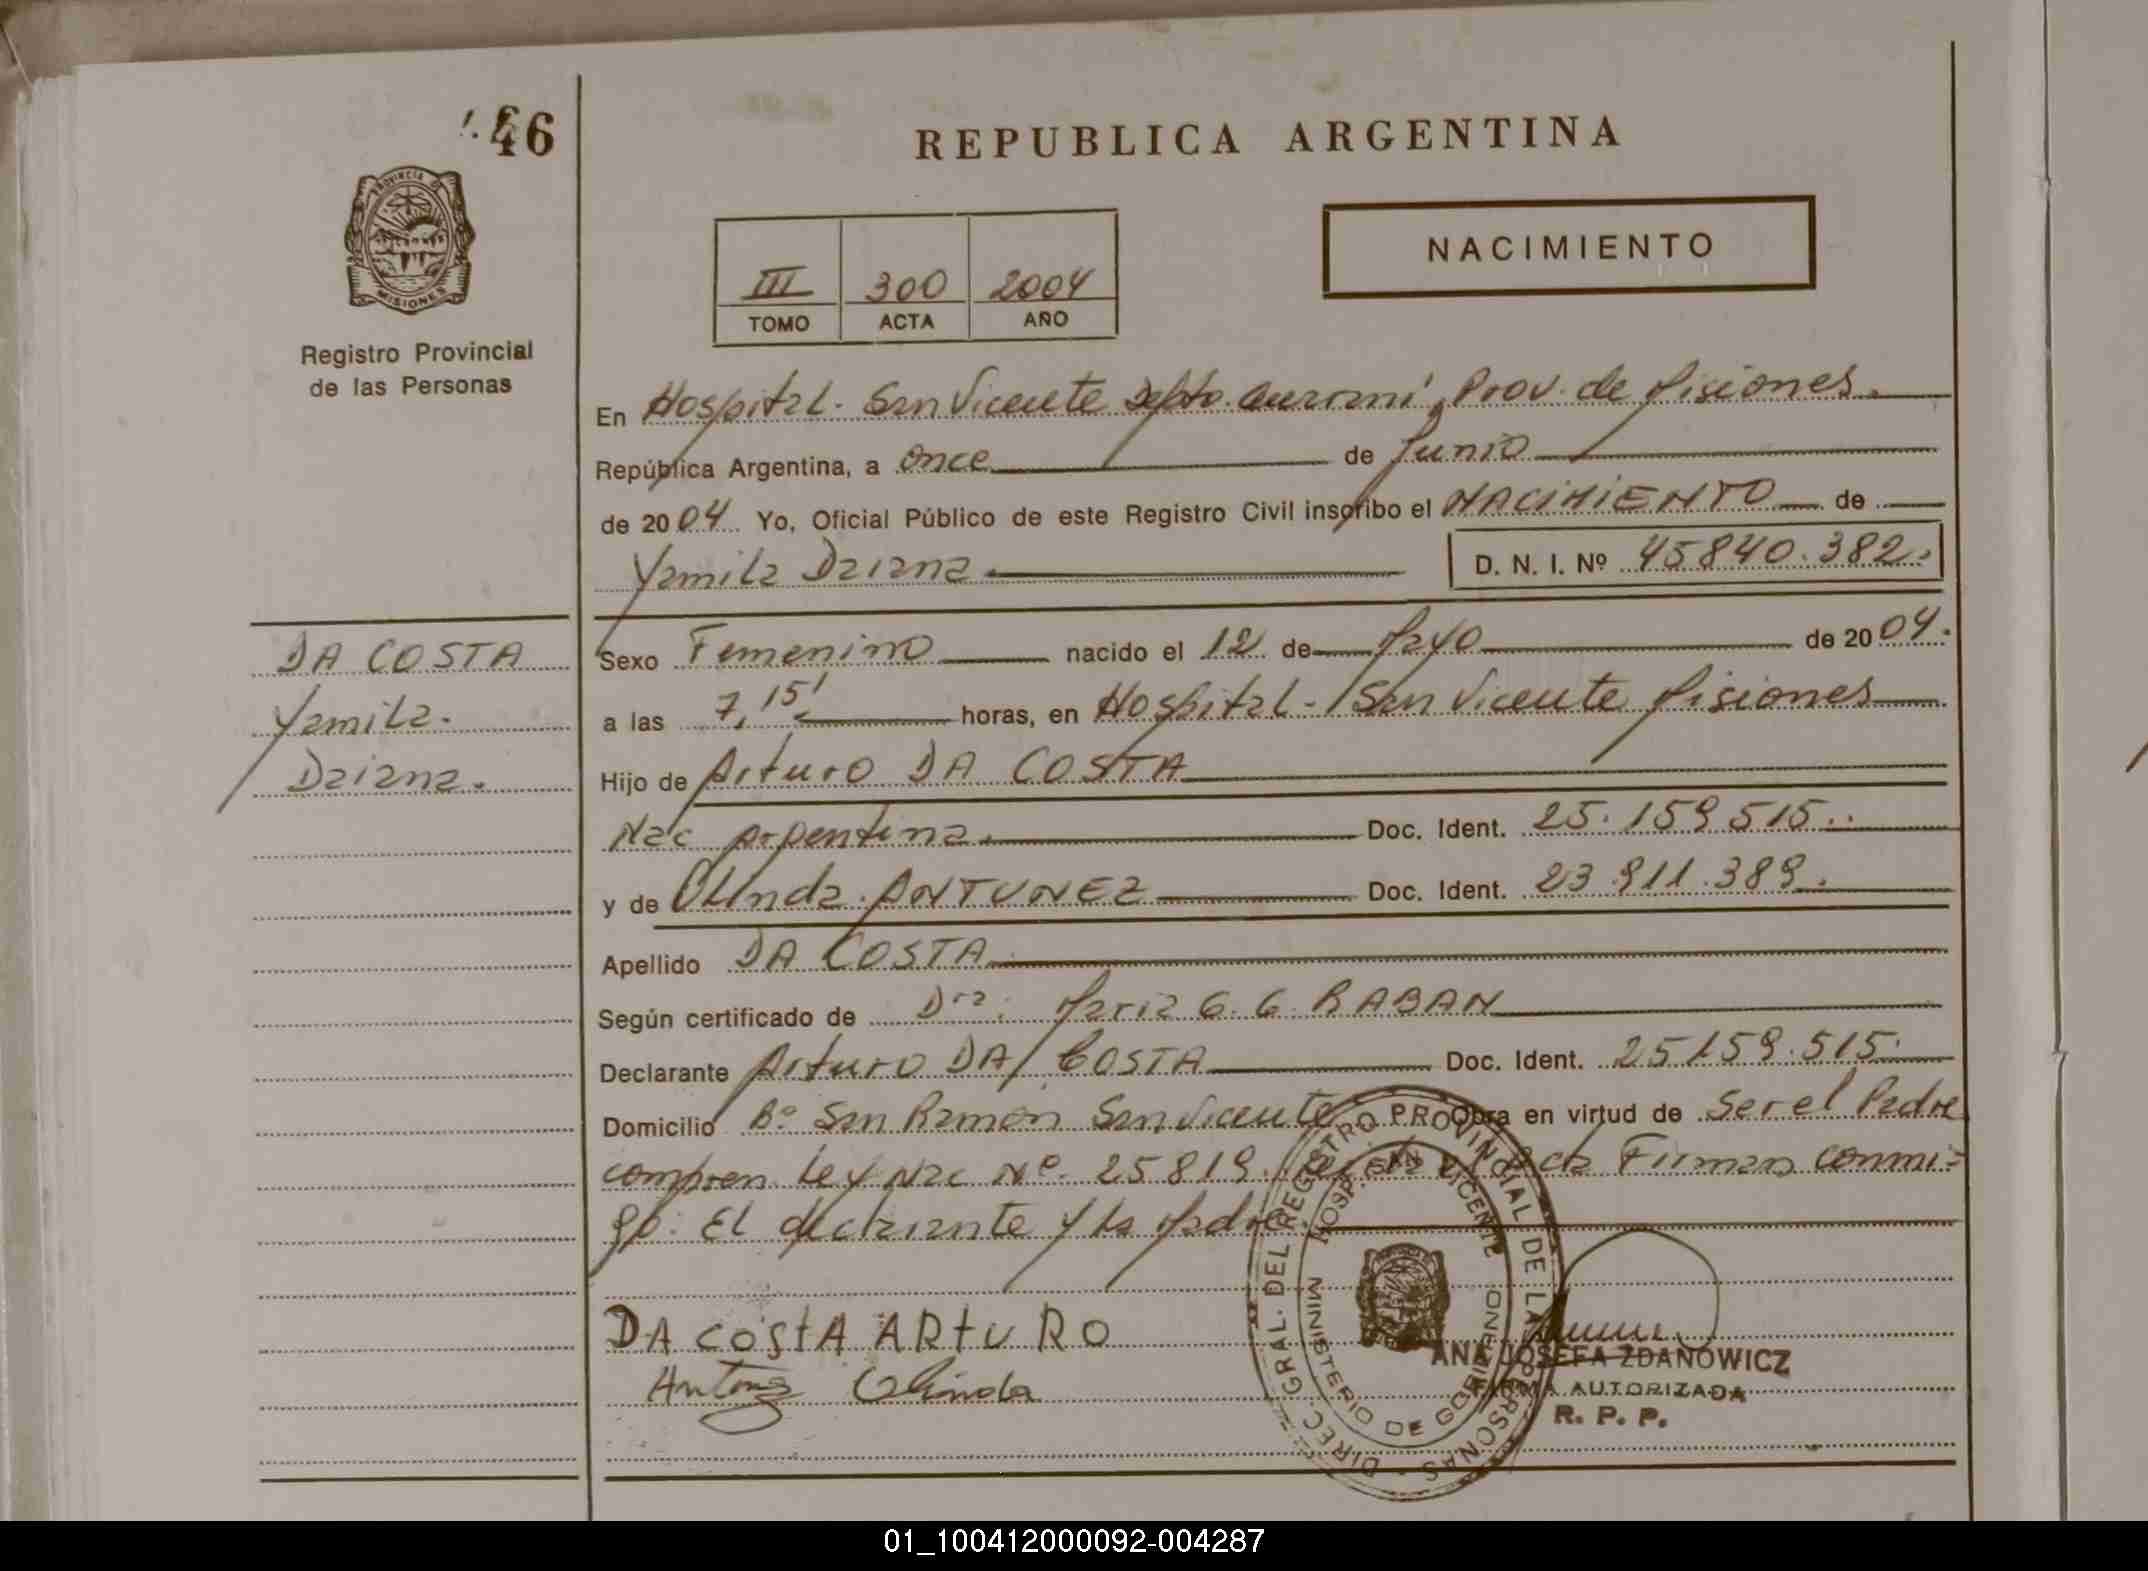 46
REPUBLICA ARGENTINA
PROVINCIA DE
MISIONES
Registro Provincial
de las Personas
NACIMIENTO
III 300 2004
TOMO ACTA AÑO
En Hospital. San Vicente Dpto. Guaraní, Prov. de Misiones.
República Argentina, a once de Junio
de 2004 Yo, Oficial Público de este Registro Civil inscribo el NACIMIENTO de
Yamila Daiana. D. N. I. Nº 45840.382.
DA COSTA
Yamila.
Daiana.
Sexo Femenino nacido el 12 de Mayo de 2004.
a las 7,15' horas, en Hospital - San Vicente Misiones
Hijo de Arturo DA COSTA
Nac Argentina. Doc. Ident. 25.159.515.
y de Olinda ANTUNEZ Doc. Ident. 23.911.389.
Apellido DA COSTA
Según certificado de Dra. Maria G. G. RABAN
Declarante Arturo DA COSTA Doc. Ident. 25159.515.
Domicilio Bº San Ramón San Vicente Obra en virtud de Ser el Padre
Ley Nac Nº. 25819. Firman conmi-
go: El declarante y la Madre.
DA COSTA ARTURO
Olinda
DIREC. GRAL. DEL REGISTRO PROVINCIAL DE LAS PERSONAS
HOSP. SAN VICENTE
MINISTERIO DE GOBIERNO
ANA JOSEFA ZDANOWICZ
FIRMA AUTORIZADA
R. P. P.
01_100412000092-004287